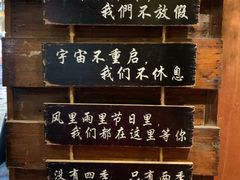 我們不放假
宇宙不重启
我们不休息
风里雨里节日里，
我们都在这里等你
没有四季 只有两季